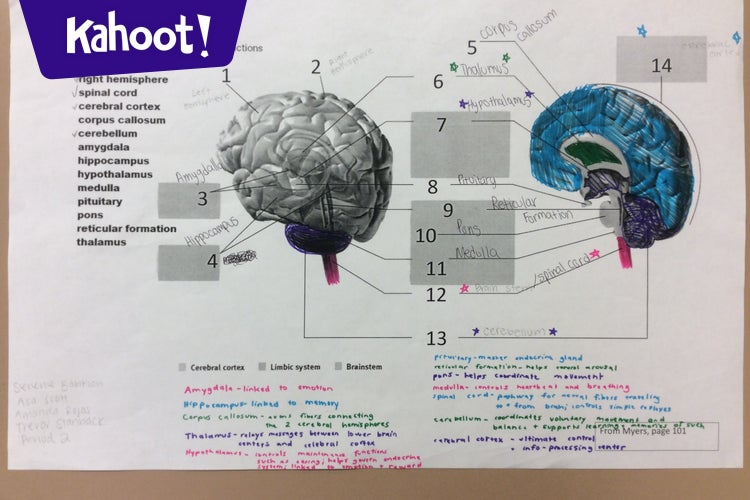 Kahoot!
ctions
right hemisphere
spinal cord
cerebral cortex
corpus callosum
cerebellum
amygdala
hippocampus
hypothalamus
medulla
pituitary
pons
reticular formation
thalamus
1
Left hemisphere
2
Right hemisphere
Amygdala
3
Hippocampus
4
5
corpus callosum
6
Thalumus
7
Hypothalamus
8
Pituitary
9
Reticular Formation
10
Pons
11
Medulla
12
Brain stem/spinal cord
13
cerebellum
14
cerebral cortex
Cerebral cortex
Limbic system
Brainstem
Amygdala - linked to emotion
Hippocampus - linked to memory
Corpus callosum - axons fibers connecting
the 2 cerebral hemispheres
Thalamus - relays messages between lower brain
centers and celebral cortex
Hypothalamus - controls maintenance functions
such as eating; helps govern endocrine
system; linked to emotion + reward
pituitary - master endocrine gland
reticular formation - helps control arousal
pons - helps coordinate movement
medulla - controls heartbeat and breathing
spinal cord - pathway for neral fibers traveling
to + from brain; controls simple reflexes
cerebellum - coordinates voluntary movement and
balance + supports learning + memories of such
cerebral cortex - ultimate control
+ info-processing center
From Myers, page 101
Period 2